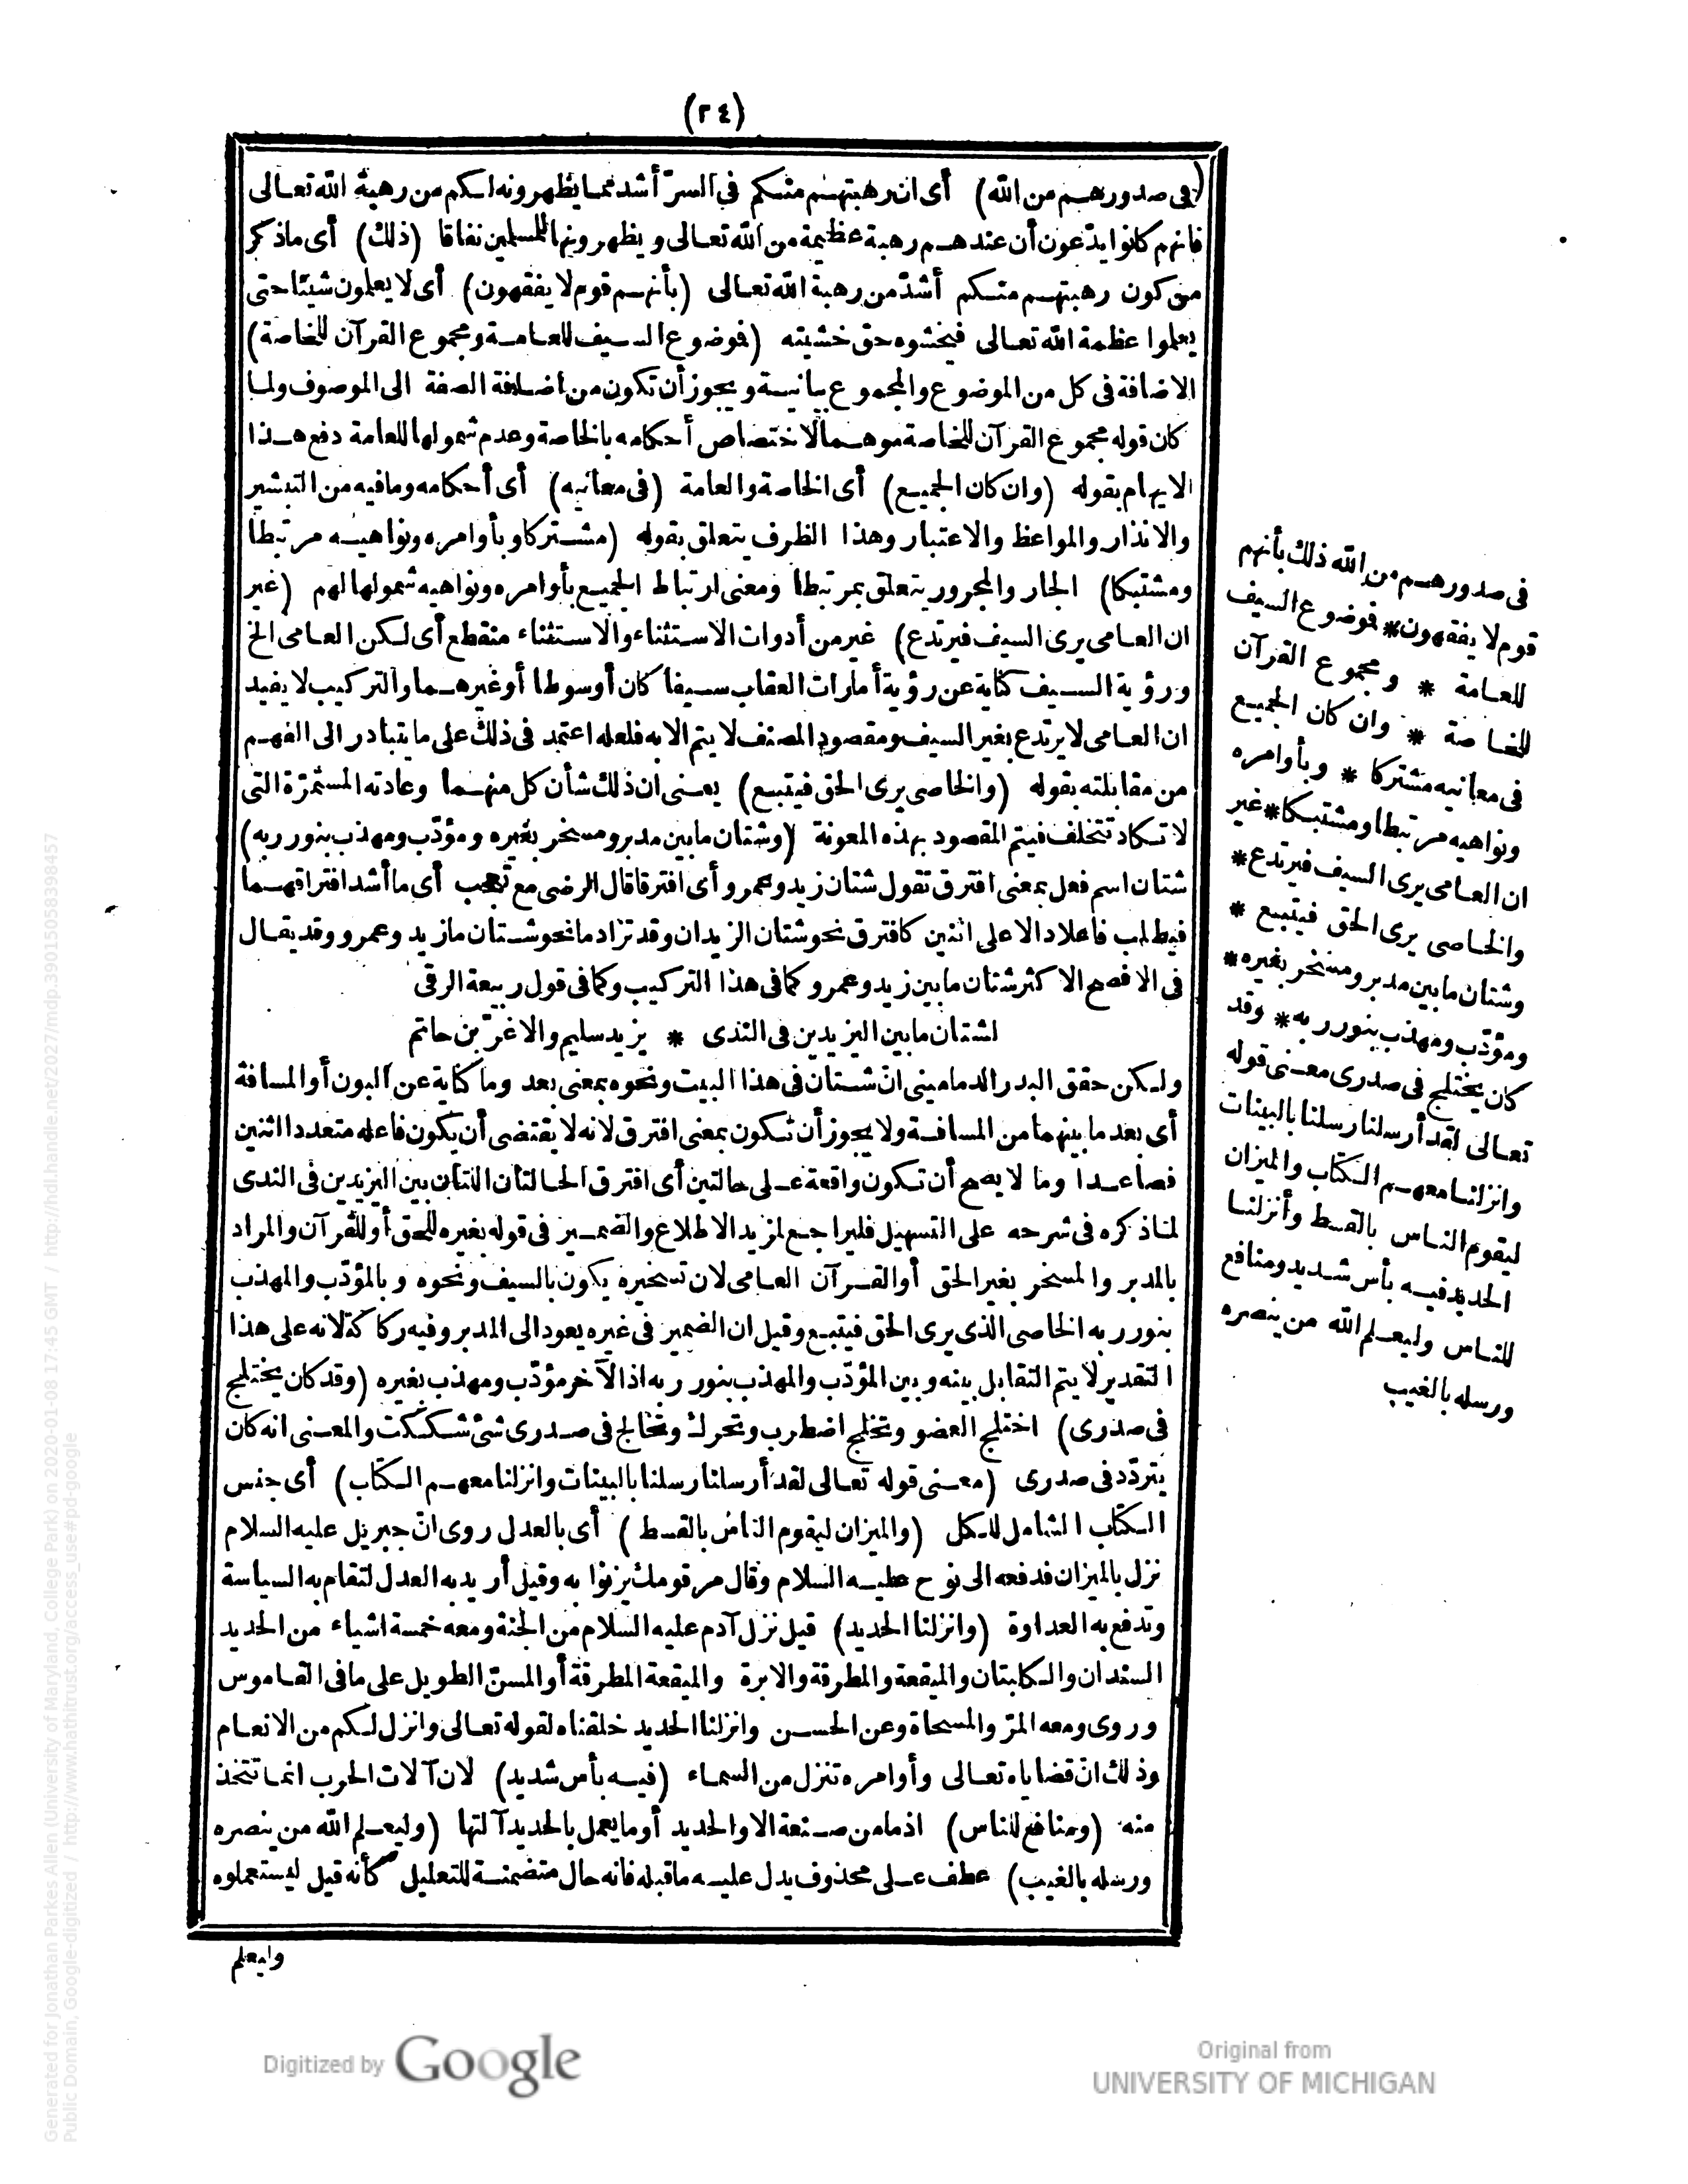 (٢٤)
(فى صدورهم من الله) أى ان رهبتهم منكم فى السرّ أشد مما يظهرونه لكم من رهبة الله تعالى
فانهم كانوا يدّعون أن عندهم رهبة عظيمة من الله تعالى و يظهرونها للمسلين نفاقا (ذلك) أى ماذكر
من كون رهبتهم منكم أشدّ من رهبة الله تعالى (بأنهم قوم لا يفقهون) أى لا يعلون شيئا حتى
يعلوا عظمة الله تعالى فيخشوه حق خشيته (فوضوع السيف للعامة ومجموع القرآن للخاصة)
الاضافة فى كل من الموضوع والمجموع بيانية و يجوز أن تكون من اضافة الصفة الى الموصوف ولما
كان قوله مجموع القرآن للخاصة موهما لاختصاص أحكامه بالخاصة وعدم شمولها للعامة دفع هذا
الايهام بقوله (وان كان الجميع) أى الخاصة والعامة (فى معانيه) أى أحكامه ومافيه من التبشير
والانذار والمواعظ والاعتبار وهذا الظرف يتعلق بقوله (مشتركا و بأوامره ونواهيه مرتبطا
ومشتبكا) الجار والمجرور يتعلق بمرتبطا ومعنى ارتباط الجميع بأوامره ونواهيه شمولها لهم (غير
ان العامى يرى السيف فيرتدع) غير من أدوات الاستثناء والاستثناء منقطع أى لكن العامى الخ
ورؤية السيف كناية عن رؤية أمارات العقاب سيفا كان أوسوطا أوغيرهما والتركيب لا يفيد
ان العامى لا يرتدع بغير السيف ومقصود المصنف لا يتم الا به فلعله اعتمد فى ذلك على ما يتبادر الى الفهم
من مقابلته بقوله (والخاصى يرى الحق فيتبع) يعنى ان ذلك شأن كل منهما وعادته المستمرّة التى
لا تكاد تتخلف فيتم المقصود بهذه المعونة (وشتان مابين مدبر ومسخر بغيره ومؤدّب ومهذب بنور ربه)
شتان اسم فعل بمعنى افترق تقول شتان زيد وعمرو أى افترقا قال الرضى مع تعجب أى ما أشد افتراقهما
فيطلب فاعلا دالا على اثنين كافترق نحو شتان الزيدان وقد تزاد ما نحو شتان ما زيد وعمرو وقد يقال
فى الافصح الاكثر شتان مابين زيد وعمرو كمافى هذا التركيب وكمافى قول ربيعة الرقى
لشتان مابين اليزيدين فى الندى * يزيد سليم والاغرّ بن حاتم
ولكن حقق البدر الدمامينى انّ شتان فى هذا البيت ونحوه بمعنى بعد وما كناية عن البون أو المسافة
أى بعد ما بينهما من المسافة ولا يجوز أن تكون بمعنى افترق لانه لا يقتضى أن يكون فاعله متعددا اثنين
فصاعدا وما لا يصح أن تكون واقعة على حالتين أى افترق الحالتان اللتان بين اليزيدين فى الندى
لماذكره فى شرحه على التسهيل فليراجع لمزيد الاطلاع والضمير فى قوله بغيره للحق أو للقرآن والمراد
بالمدبر والمسخر بغير الحق أو القرآن العامى لان تسخيره يكون بالسيف ونحوه و بالمؤدّب والمهذب
بنور ربه الخاصى الذى يرى الحق فيتبع وقيل ان الضمير فى غيره يعود الى المدبر وفيه ركاكة لانه على هذا
التقدير لا يتم التقابل بينه و بين المؤدّب والمهذب بنور ربه اذ الآخر مؤدّب ومهذب بغيره (وقد كان يختلج
فى صدرى) اختلج العضو وتخلج اضطرب وتحرك وتخالج فى صدرى شئ شككت والمعنى انه كان
يتردّد فى صدرى (معنى قوله تعالى لقد أرسلنا رسلنا بالبينات وانزلنا معهم الكتاب) أى جنس
الكتاب الشامل للكل (والميزان ليقوم الناس بالقسط) أى بالعدل روى انّ جبريل عليه السلام
نزل بالميزان فدفعه الى نوح عليه السلام وقال مر قومك يزنوا به وقيل أريد به العدل لتقام به السياسة
وتدفع به العداوة (وانزلنا الحديد) قيل نزل آدم عليه السلام من الجنة ومعه خمسة اشياء من الحديد
السندان والكلبتان والميقعة والمطرقة والابرة والميقعة المطرقة أو المسنّ الطويل على مافى القاموس
وروى ومعه المرّ والمسحاة وعن الحسن وانزلنا الحديد خلقناه لقوله تعالى وانزل لكم من الانعام
وذلك انّ قضاياه تعالى وأوامره تنزل من السماء (فيه بأس شديد) لان آلات الحرب انما تتخذ
منه (ومنافع للناس) اذ مامن صنعة الا والحديد أو ما يعمل بالحديد آلتها (وليعلم الله من ينصره
ورسله بالغيب) عطف على محذوف يدل عليه ماقبله فانه حال متضمنة للتعليل كأنه قيل ليستعملوه
وليعلم
فى صدورهم من الله ذلك بأنهم
قوم لا يفقهون * فوضوع السيف
للعامة * و مجموع القرآن
للخاصة * وان كان الجميع
فى معانيه مشتركا * و بأوامره
ونواهيه مرتبطا ومشتبكا * غير
ان العامى يرى السيف فيرتدع *
والخاصى يرى الحق فيتبع *
وشتان مابين مدبر ومسخر بغيره *
ومؤدّب ومهذب بنور ربه * وقد
كان يختلج فى صدرى معنى قوله
تعالى لقد أرسلنا رسلنا بالبينات
وانزلنا معهم الكتاب والميزان
ليقوم الناس بالقسط وأنزلنا
الحديد فيه بأس شديد ومنافع
للناس وليعلم الله من ينصره
ورسله بالغيب
Generated for Jonathan Parkes Allen (University of Maryland, College Park) on 2020-01-08 17:45 GMT / http://hdl.handle.net/2027/mdp.39015058398457
Public Domain, Google-digitized / http://www.hathitrust.org/access_use#pd-google
Digitized by Google
Original from
UNIVERSITY OF MICHIGAN